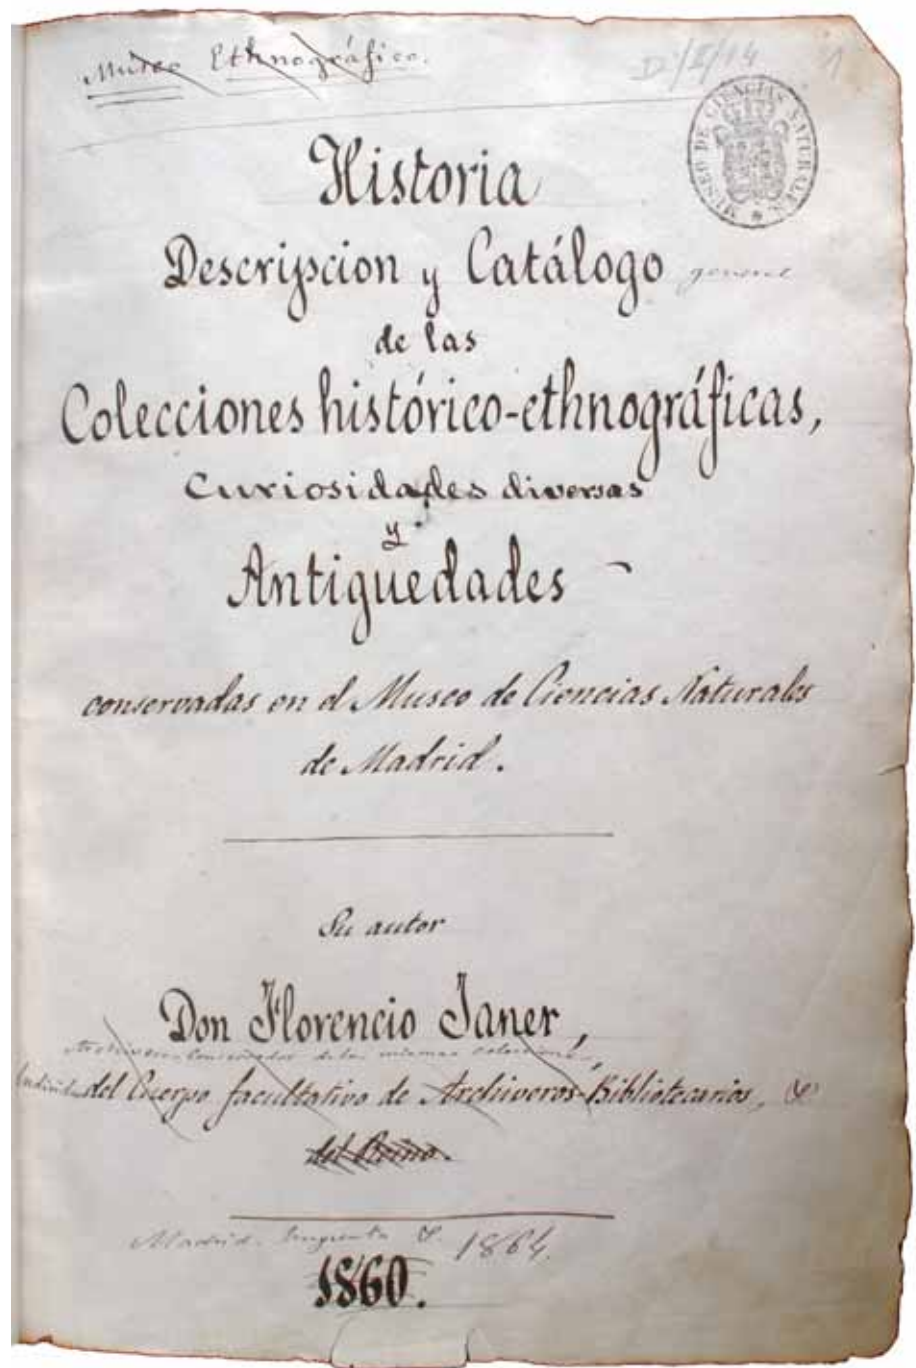 Museo Ethnográfico.
1
MUSEO DE CIENCIAS NATURALES
Historia
Descripcion y Catálogo general
de las
Colecciones histórico-ethnográficas,
Curiosidades diversas
y
Antigüedades
conservadas en el Museo de Ciencias Naturales
de Madrid.
Su autor
Don Florencio Janer,
Archivero Conservador de las mismas colecciones,
del Cuerpo facultativo de Archiveros-Bibliotecarios, &
del Reino.
Madrid. Imprenta &. 1864.
1860.